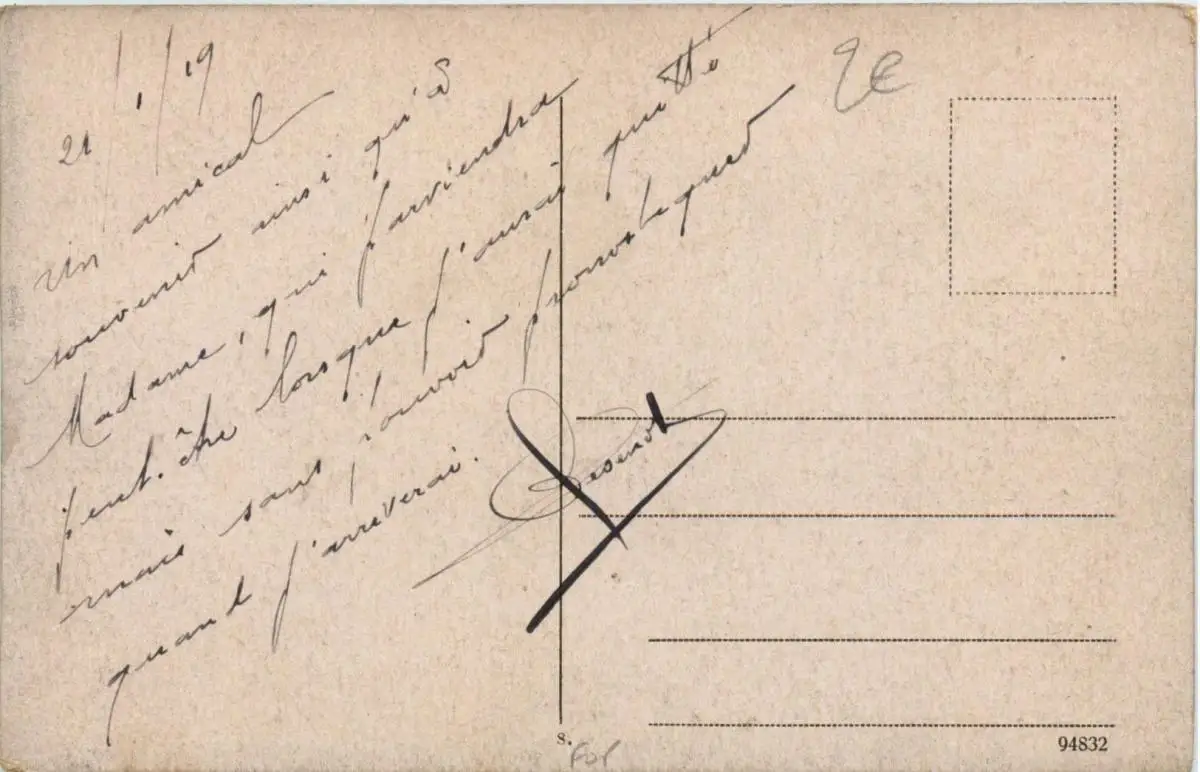 21/1/19
Un amical
souvenir ainsi qu'à
Madame, qui parviendra
peut-être lorsque j'aurai quitté
mais sans pouvoir pronostiquer
quand j'arriverai.
2€
s.
94832